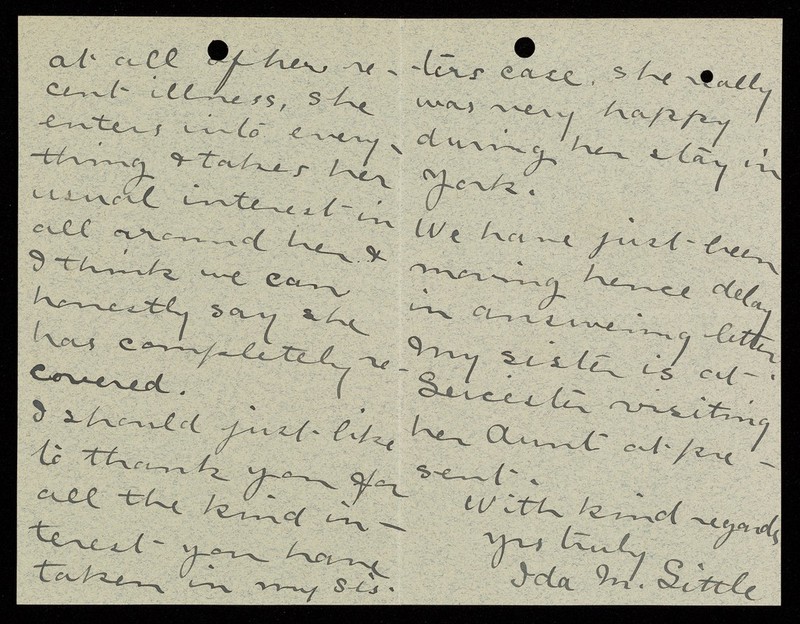 at all of her re-
cent illness, she
enters into every-
thing & takes her
usual interest in
all around her &
I think we can
honestly say she
has completely re-
covered.
I should just like
to thank you for
all the kind in-
terest you have
taken in my sis-
-ters case. she really
was very happy
during her stay in
York.
We have just been
moving hence delay
in answering letter.
My sister is at
Leicester visiting
her Aunt at pre-
sent.
With kind regards
yrs truly
Ida M. Little